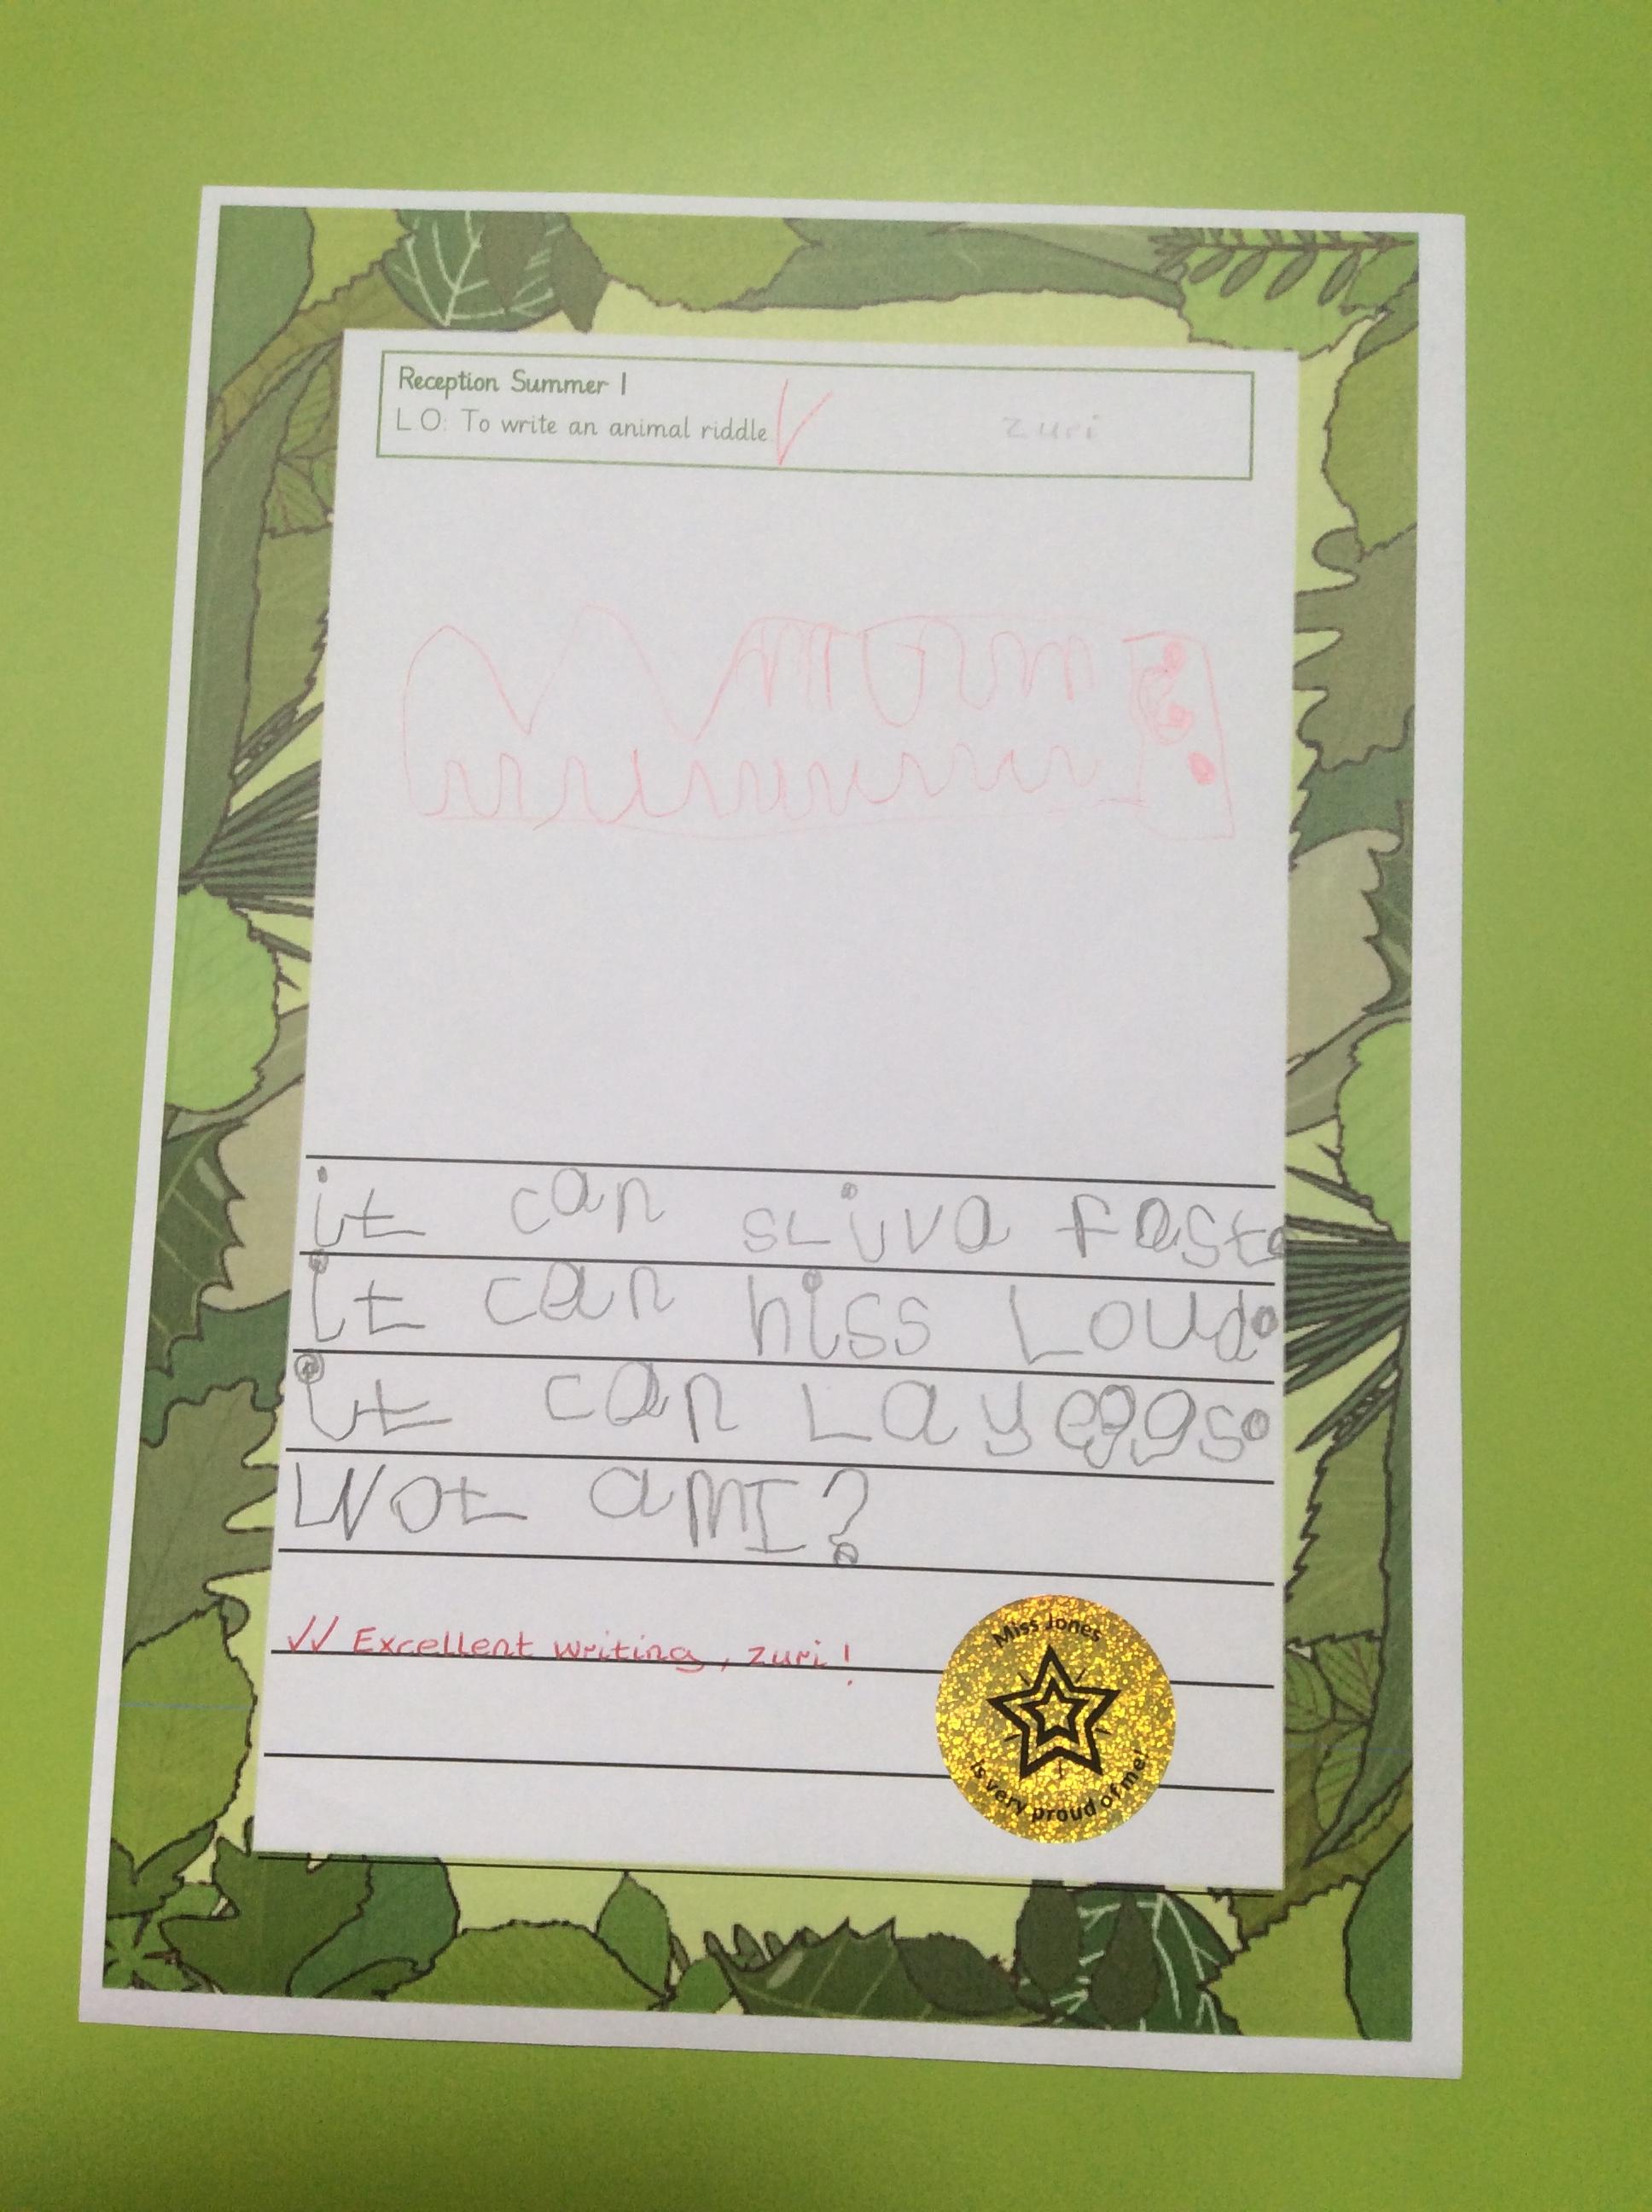 Reception Summer 1
L.O: To write an animal riddle
zuri
it can sliva fast.
it can hiss Loud.
it can Lay eggs.
Wot am I?
✓✓ Excellent writing, zuri!
Miss Jones
is very proud of me!